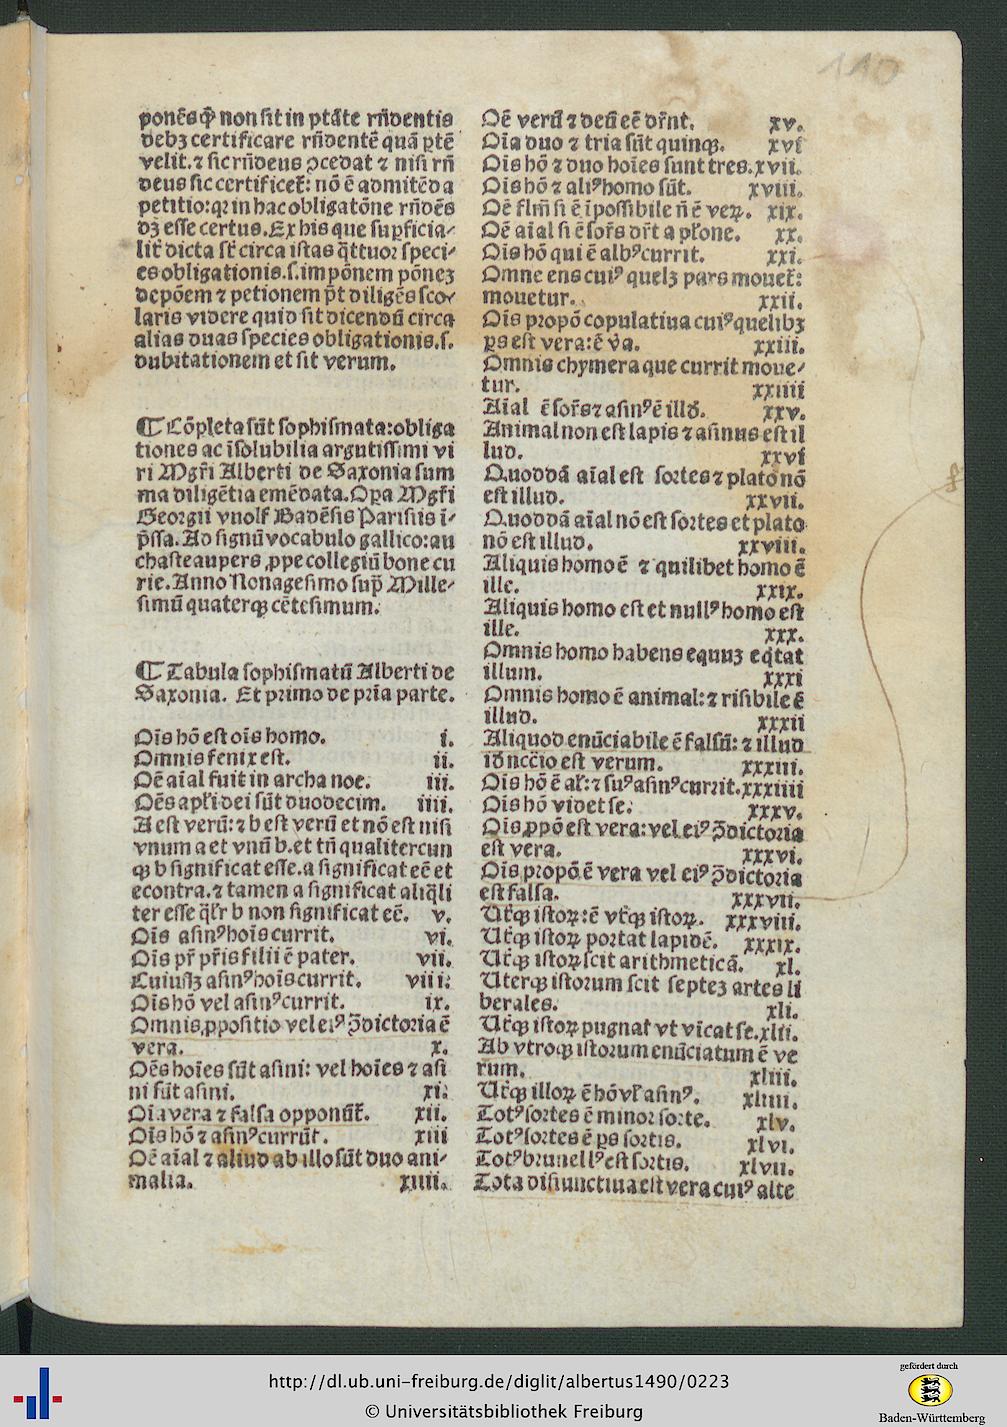 110
ponẽs ꝙ̃ non sit in ptãte rñdentis
debꝫ certificare rñdentẽ quã ptẽ
velit. ⁊ sic rñdens ꝓcedat ⁊ nisi rñ
dens sic certificet̃: nõ ẽ admitẽda
petitio: qꝛ in hac obligatõne rñdẽs
dꝫ esse certus. Ex his que suꝑficia⸗
lit̃ dicta st̃ circa istas q̃ttuor speci⸗
es obligationis .s. impõnem põneꝫ
depõem ⁊ petionem p̃t diligẽs sco⸗
laris videre quid sit dicendũ circa
alias duas species obligationis .s.
dubitationem et sit verum.
¶ Cõpleta sũt sophismata: obliga
tiones ac ĩsolubilia argutissimi vi
ri Mgr̃i Alberti de Saxonia sum
ma diligẽtia emẽdata. Oꝑa Mgr̃i
Georgii vnolf Badẽsis Parisiis i⸗
p̃ssa. Ad signũ vocabulo gallico: au
chasteaupers ꝓpe collegiũ bone cu
rie. Anno Nonagesimo supͥ Mille⸗
simũ quaterqꝫ cẽtesimum.
¶ Tabula sophismatũ Alberti de
Saxonia. Et primo de pria parte.
Ois hõ est ois homo. i.
Omnis fenix est. ii.
Oẽ aĩal fuit in archa noe. iii.
Oẽs apl̃i dei sũt duodecim. iiii.
A est verũ: ⁊ b est verũ et nõ est nisi
vnum a et vnũ b. et tñ qualitercun
qꝫ b significat esse. a significat eẽ et
econtra. ⁊ tamen a significat aliq̃li
ter esse q̃lr̃ b non significat eẽ. v.
Ois asinꝰ hoĩs currit. vi.
Ois pr̃ pr̃is filii ẽ pater. vii.
Cuiuslꝫ asinꝰ hoĩs currit. viii.
Ois hõ vel asinꝰ currit. ix.
Omnis ꝓpositio vel eiꝰ ꝯ̃dictoria ẽ
vera. x.
Oẽs hoĩes sũt asini: vel hoĩes ⁊ asi
ni sũt asini. xi.
Oia vera ⁊ falsa opponũt̃. xii.
Ois hõ ⁊ asinꝰ currũt. xiii
Oẽ aĩal ⁊ aliud ab illo sũt duo ani⸗
malia. xiiii.
Oẽ verũ ⁊ deũ eẽ dr̃nt. xv.
Oia duo ⁊ tria sũt quinqꝫ. xvi
Ois hõ ⁊ duo hoĩes sunt tres. xvii.
Ois hõ ⁊ aliꝰ homo sũt. xviii.
Oẽ fl̃m si ẽ ĩpossibile ñ ẽ veꝝ. xix.
Oẽ aĩal si ẽ sor̃s dr̃t a pl̃one. xx.
Ois hõ qui ẽ albꝰ currit. xxi.
Omne ens cuiꝰ quelꝫ pars mouet̃:
mouetur. xxii.
Ois propõ copulatiua cuiꝰ quelibꝫ
ps est vera: ẽ ṽa. xxiii.
Omnis chymera que currit moue⸗
tur. xxiiii
Aĩal ẽ sor̃s ⁊ asinꝰ ẽ illđ. xxv.
Animal non est lapis ⁊ asinus est il
lud. xxvi
Quoddã aĩal est sortes ⁊ plato nõ
est illud. xxvii.
Quoddã aĩal nõ est sortes et plato
nõ est illud. xxviii.
Aliquis homo ẽ ⁊ quilibet homo ẽ
ille. xxix.
Aliquis homo est et nullꝰ homo est
ille. xxx.
Omnis homo habens equuꝫ eq̃tat
illum. xxxi
Omnis homo ẽ animal: ⁊ risibile ẽ
illud. xxxii
Aliquod enũciabile ẽ falsũ: ⁊ illud
id̃ nccĩo est verum. xxxiii.
Ois hõ ẽ al̃: ⁊ suꝰ asinꝰ currit. xxxiiii
Ois hõ videt se. xxxv.
Ois ꝓpõ est vera: vel eiꝰ ꝯ̃dictoria
est vera. xxxvi.
Ois propõ ẽ vera vel eiꝰ ꝯ̃dictoria
est falsa. xxxvii.
Ut̃qꝫ istoꝝ: ẽ vt̃qꝫ istoꝝ. xxxviii.
Ut̃qꝫ istoꝝ portat lapidẽ. xxxix.
Ut̃qꝫ istoꝝ scit arithmeticã. xl.
Uterqꝫ istorum scit septeꝫ artes li
berales. xli.
Ut̃qꝫ istoꝝ pugnat vt vĩcat se. xlii.
Ab vtroqꝫ istorum enũciatum ẽ ve
rum. xliii.
Ut̃qꝫ illoꝝ ẽ hõ vl̃ asinꝰ. xliiii.
Totꝰ sortes ẽ minor sorte. xlv.
Totꝰ sortes ẽ ps sortis. xlvi.
Totꝰ brunellꝰ est sortis. xlvii.
Tota disiunctiua est vera cuiꝰ alte
http://dl.ub.uni-freiburg.de/diglit/albertus1490/0223
© Universitätsbibliothek Freiburg
gefördert durch
Baden-Württemberg